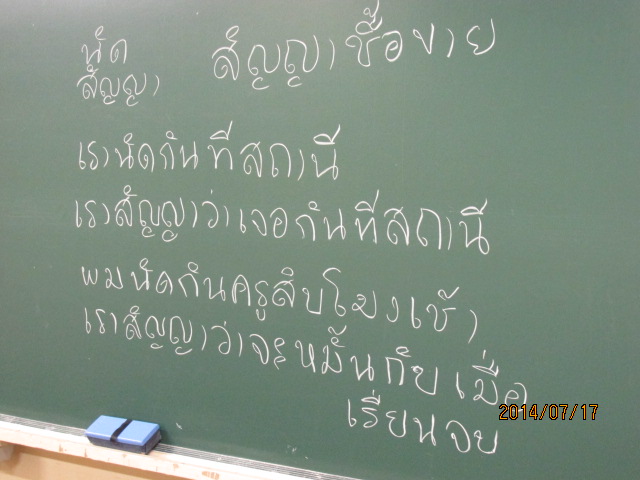 นัด
สัญญา
สัญญาซื้อขาย
เรานัดกันที่สถานี
เราสัญญาว่าเจอกันที่สถานี
ผมนัดกันครูสิบโมงเช้า
เราสัญญาว่าจะหมั้นกับเมื่อ
เรียนจบ
2014/07/17